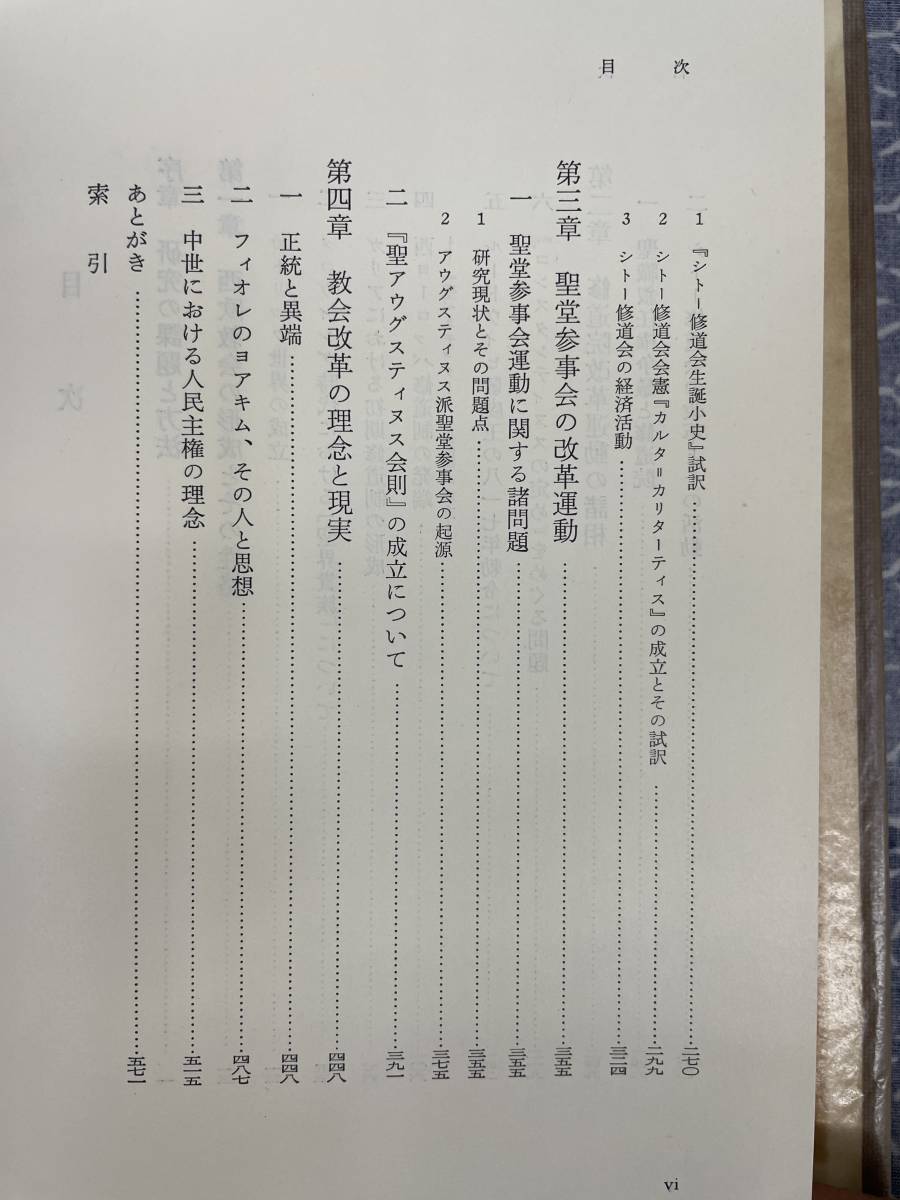 目次
1 『シトー修道会生誕小史』試訳……二七〇
2 シトー修道会会憲『カルタ＝カリターティス』の成立とその試訳……二九九
3 シトー修道会の経済活動……三二四
第三章 聖堂参事会の改革運動……三五五
一 聖堂参事会運動に関する諸問題……三五五
1 研究現状とその問題点……三五五
2 アウグスティヌス派聖堂参事会の起源……三七五
二 『聖アウグスティヌス会則』の成立について……三九一
第四章 教会改革の理念と現実……四四八
一 正統と異端……四四八
二 フィオレのヨアキム、その人と思想……四八七
三 中世における人民主権の理念……五一五
あとがき……五七一
索引
vi